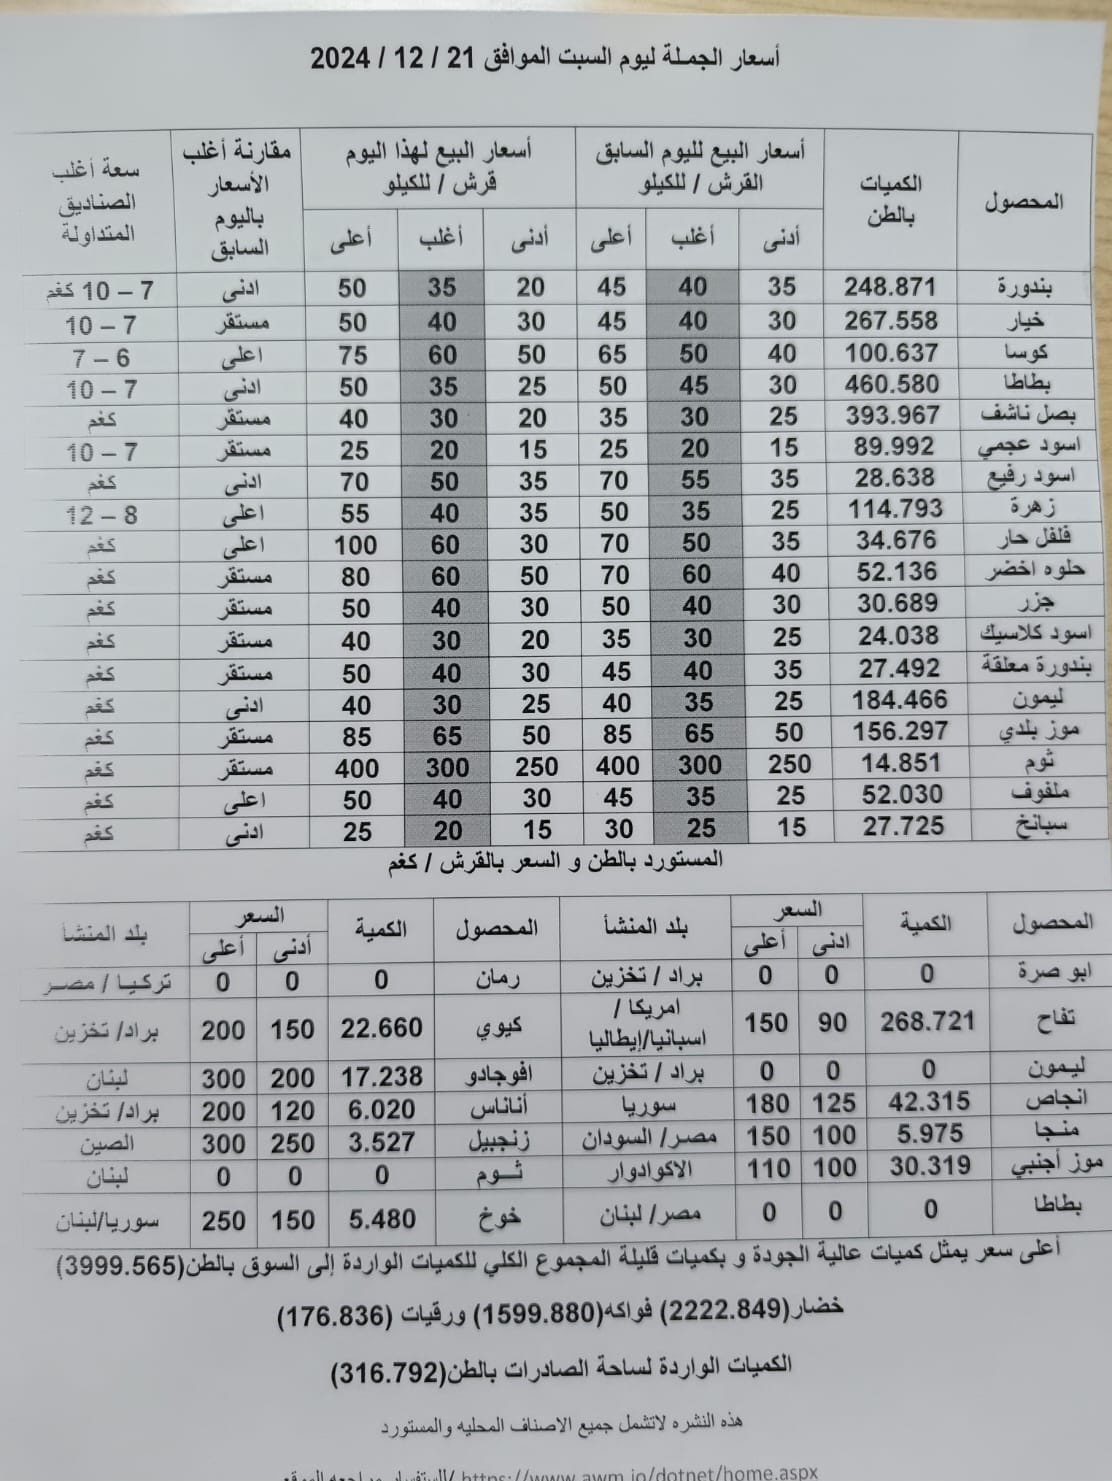 أسعار الجملة ليوم السبت الموافق 21 / 12 / 2024
المحصول الكميات بالطن أسعار البيع لليوم السابق القرش / للكيلو أسعار البيع لهذا اليوم قرش / للكيلو مقارنة أغلب الأسعار باليوم السابق سعة أغلب الصناديق المتداولة
أدنى أغلب أعلى أدنى أغلب أعلى
بندورة 248.871 35 40 45 20 35 50 ادنى 7 – 10 كغم
خيار 267.558 30 40 45 30 40 50 مستقر 7 – 10
كوسا 100.637 40 50 65 50 60 75 اعلى 6 – 7
بطاطا 460.580 30 45 50 25 35 50 ادنى 7 – 10
بصل ناشف 393.967 25 30 35 20 30 40 مستقر كغم
اسود عجمي 89.992 15 20 25 15 20 25 مستقر 7 – 10
اسود رفيع 28.638 35 55 70 35 50 70 ادنى كغم
زهرة 114.793 25 35 50 35 40 55 اعلى 8 – 12
فلفل حار 34.676 35 50 70 30 60 100 اعلى كغم
حلوه اخضر 52.136 40 60 70 50 60 80 مستقر كغم
جزر 30.689 30 40 50 30 40 50 مستقر كغم
اسود كلاسيك 24.038 25 30 35 20 30 40 مستقر كغم
بندورة معلقة 27.492 35 40 45 30 40 50 مستقر كغم
ليمون 184.466 25 35 40 25 30 40 ادنى كغم
موز بلدي 156.297 50 65 85 50 65 85 مستقر كغم
ثوم 14.851 250 300 400 250 300 400 مستقر كغم
ملفوف 52.030 25 35 45 30 40 50 اعلى كغم
سبانخ 27.725 15 25 30 15 20 25 ادنى كغم
المستورد بالطن و السعر بالقرش / كغم
المحصول الكمية السعر بلد المنشأ المحصول الكمية السعر بلد المنشأ
ادنى أعلى أدنى أعلى
ابو صرة 0 0 0 براد / تخزين رمان 0 0 0 تركيا / مصر
تفاح 268.721 90 150 امريكا / اسبانيا/إيطاليا كيوي 22.660 150 200 براد/ تخزين
ليمون 0 0 0 براد / تخزين افوجادو 17.238 200 300 لبنان
انجاص 42.315 125 180 سوريا أناناس 6.020 120 200 براد/ تخزين
منجا 5.975 100 150 مصر/ السودان زنجبيل 3.527 250 300 الصين
موز أجنبي 30.319 100 110 الاكوادوار ثوم 0 0 0 لبنان
بطاطا 0 0 0 مصر/ لبنان خوخ 5.480 150 250 سوريا/لبنان
أعلى سعر يمثل كميات عالية الجودة و بكميات قليلة المجموع الكلي للكميات الواردة إلى السوق بالطن(3999.565)
خضار(2222.849) فواكه(1599.880) ورقيات (176.836)
الكميات الواردة لساحة الصادرات بالطن(316.792)
هذه النشره لاتشمل جميع الاصناف المحليه والمستورد
https://www.awm.jo/dotnet/home.aspx